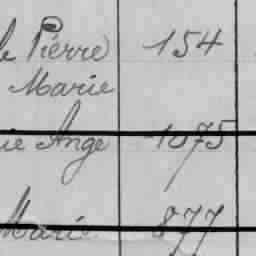 Pierre 154
Marie
Ange 1075
Marie 877